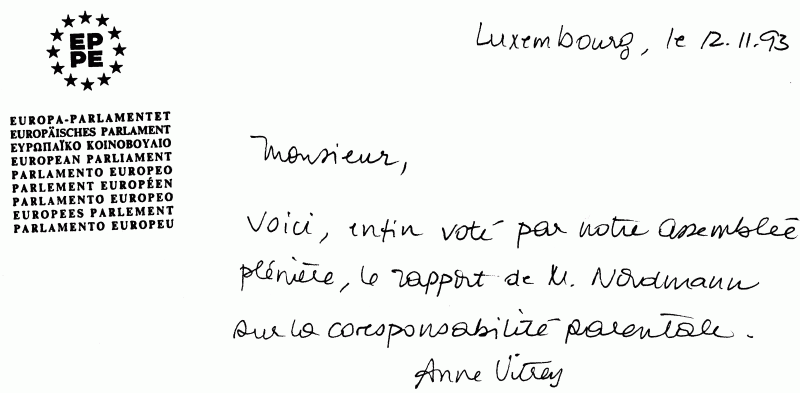 EP
PE
EUROPA-PARLAMENTET
EUROPÄISCHES PARLAMENT
ΕΥΡΩΠΑΪΚΟ ΚΟΙΝΟΒΟΥΛΙΟ
EUROPEAN PARLIAMENT
PARLAMENTO EUROPEO
PARLEMENT EUROPÉEN
PARLAMENTO EUROPEO
EUROPEES PARLEMENT
PARLAMENTO EUROPEU
Luxembourg, le 12.11.93
Monsieur,
Voici, enfin voté par notre assemblée
plénière, le rapport de M. Nordmann
sur la coresponsabilité parentale.
Anne Vitrey